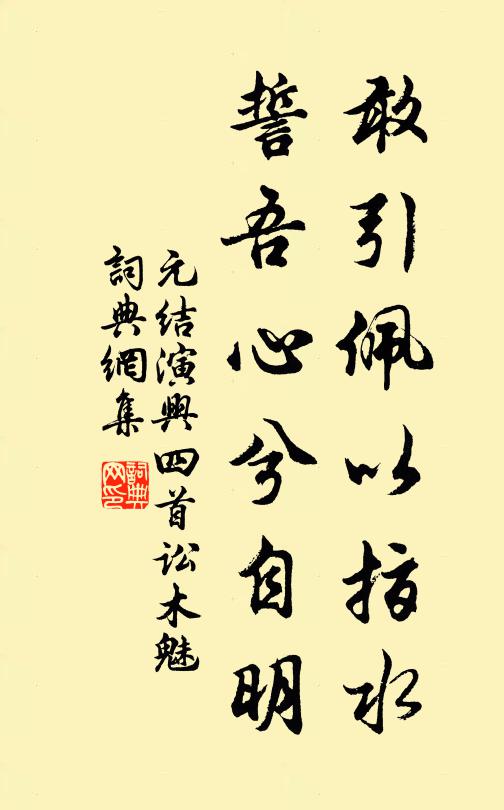 敢引佩以指水
誓吾心兮自明
元结演興四首讼木魅
詞典網集
詞典网印